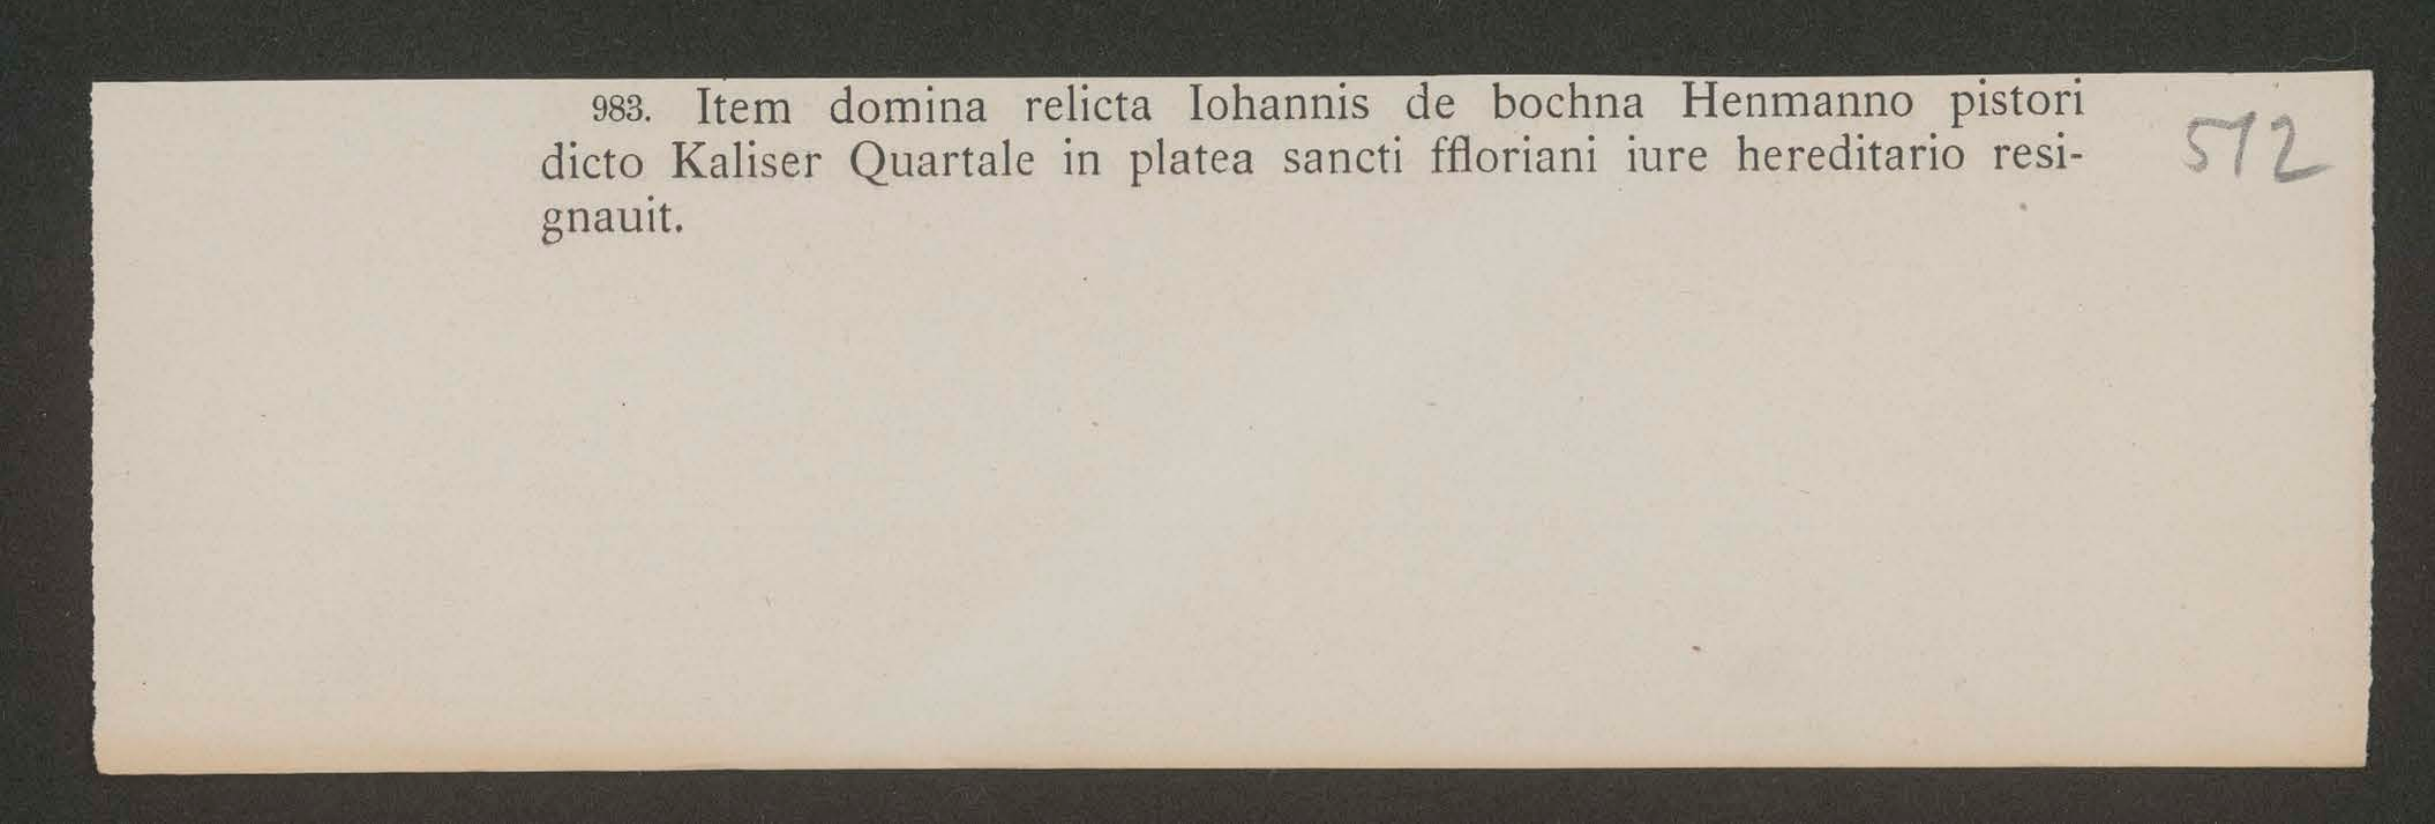 983. Item domina relicta Iohannis de bochna Henmanno pistori
dicto Kaliser Quartale in platea sancti ffloriani iure hereditario resi-
gnauit.
512